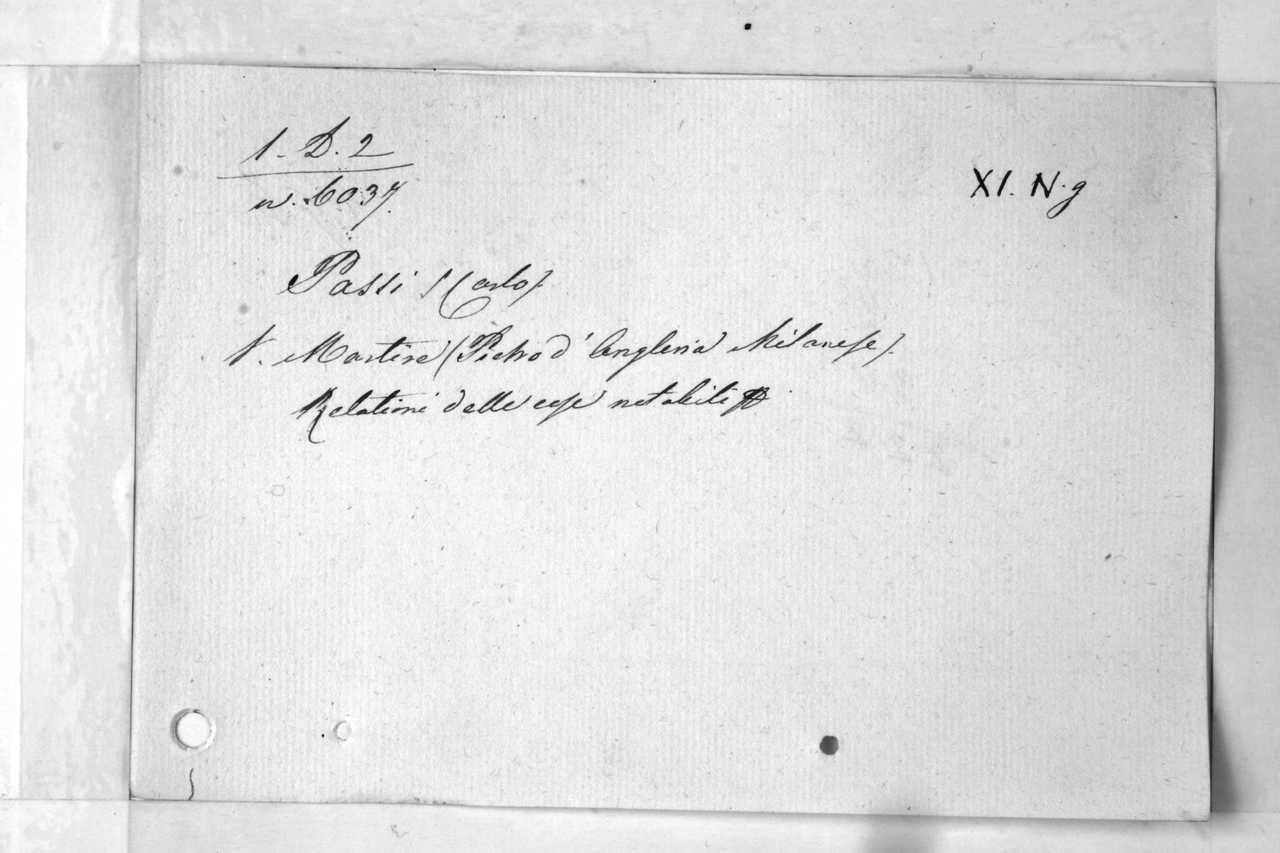 1. D. 2
n. 6037.
XI. N. g
Passi (Carlo).
V. Martire (Pietro d'Angleria Milanese).
Relationi delle cose notabili